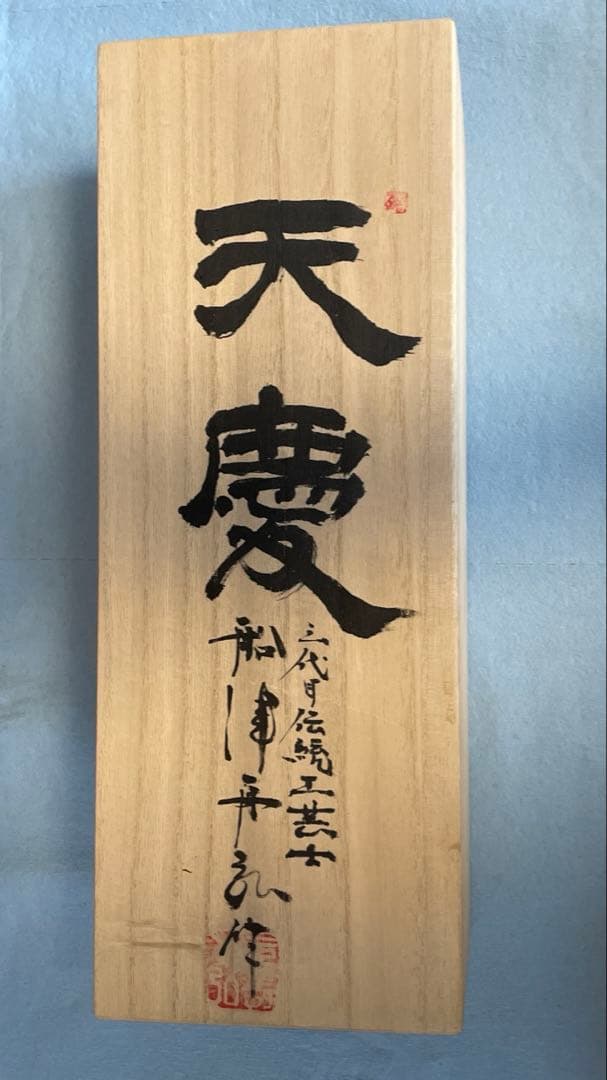 天慶
三代目伝統工芸士
船津舟弘作